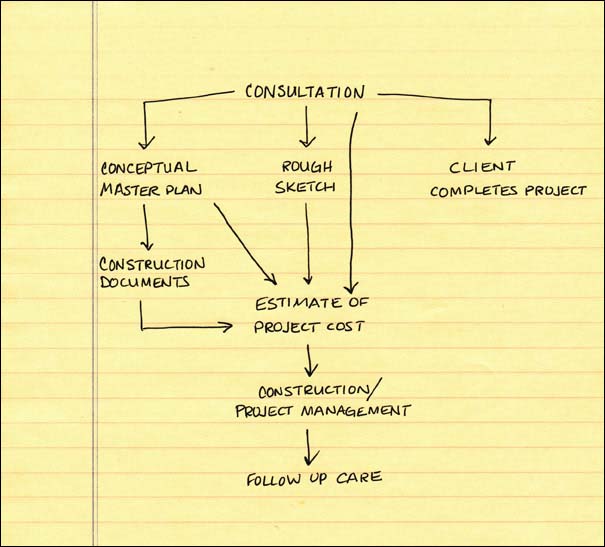 CONSULTATION
CONCEPTUAL
MASTER PLAN
ROUGH
SKETCH
CLIENT
COMPLETES PROJECT
CONSTRUCTION
DOCUMENTS
ESTIMATE OF
PROJECT COST
CONSTRUCTION/
PROJECT MANAGEMENT
FOLLOW UP CARE